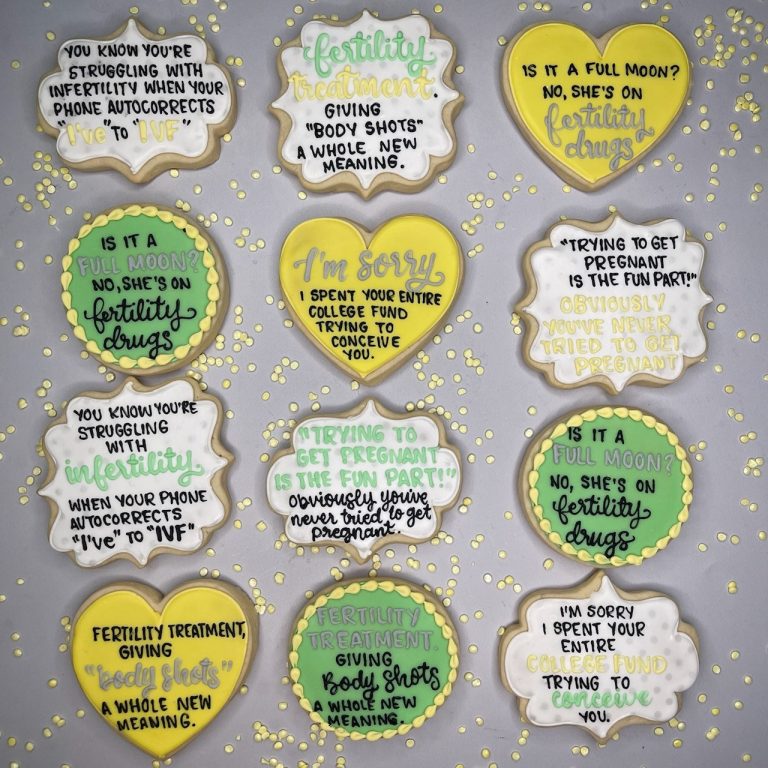 YOU KNOW YOU'RE
STRUGGLING WITH
INFERTILITY WHEN YOUR
PHONE AUTOCORRECTS
"I've" TO "IVF"
fertility
treatment.
GIVING
"BODY SHOTS"
A WHOLE NEW
MEANING.
IS IT A FULL MOON?
NO, SHE'S ON
fertility
drugs
IS IT A
FULL MOON?
NO, SHE'S ON
fertility
drugs
I'm sorry
I SPENT YOUR ENTIRE
COLLEGE FUND
TRYING TO
CONCEIVE
YOU.
"TRYING TO GET
PREGNANT
IS THE FUN PART!"
OBVIOUSLY
YOU'VE NEVER
TRIED TO GET
PREGNANT
YOU KNOW YOU'RE
STRUGGLING
WITH
infertility
WHEN YOUR PHONE
AUTOCORRECTS
"I've" TO "IVF"
"TRYING TO
GET PREGNANT
IS THE FUN PART!"
Obviously you've
never tried to get
pregnant.
IS IT A
FULL MOON?
NO, SHE'S ON
fertility
drugs
FERTILITY TREATMENT,
GIVING
"body shots"
A WHOLE NEW
MEANING.
FERTILITY
TREATMENT.
GIVING
Body shots
A WHOLE NEW
MEANING.
I'M SORRY
I SPENT YOUR
ENTIRE
COLLEGE FUND
TRYING TO
conceive
YOU.